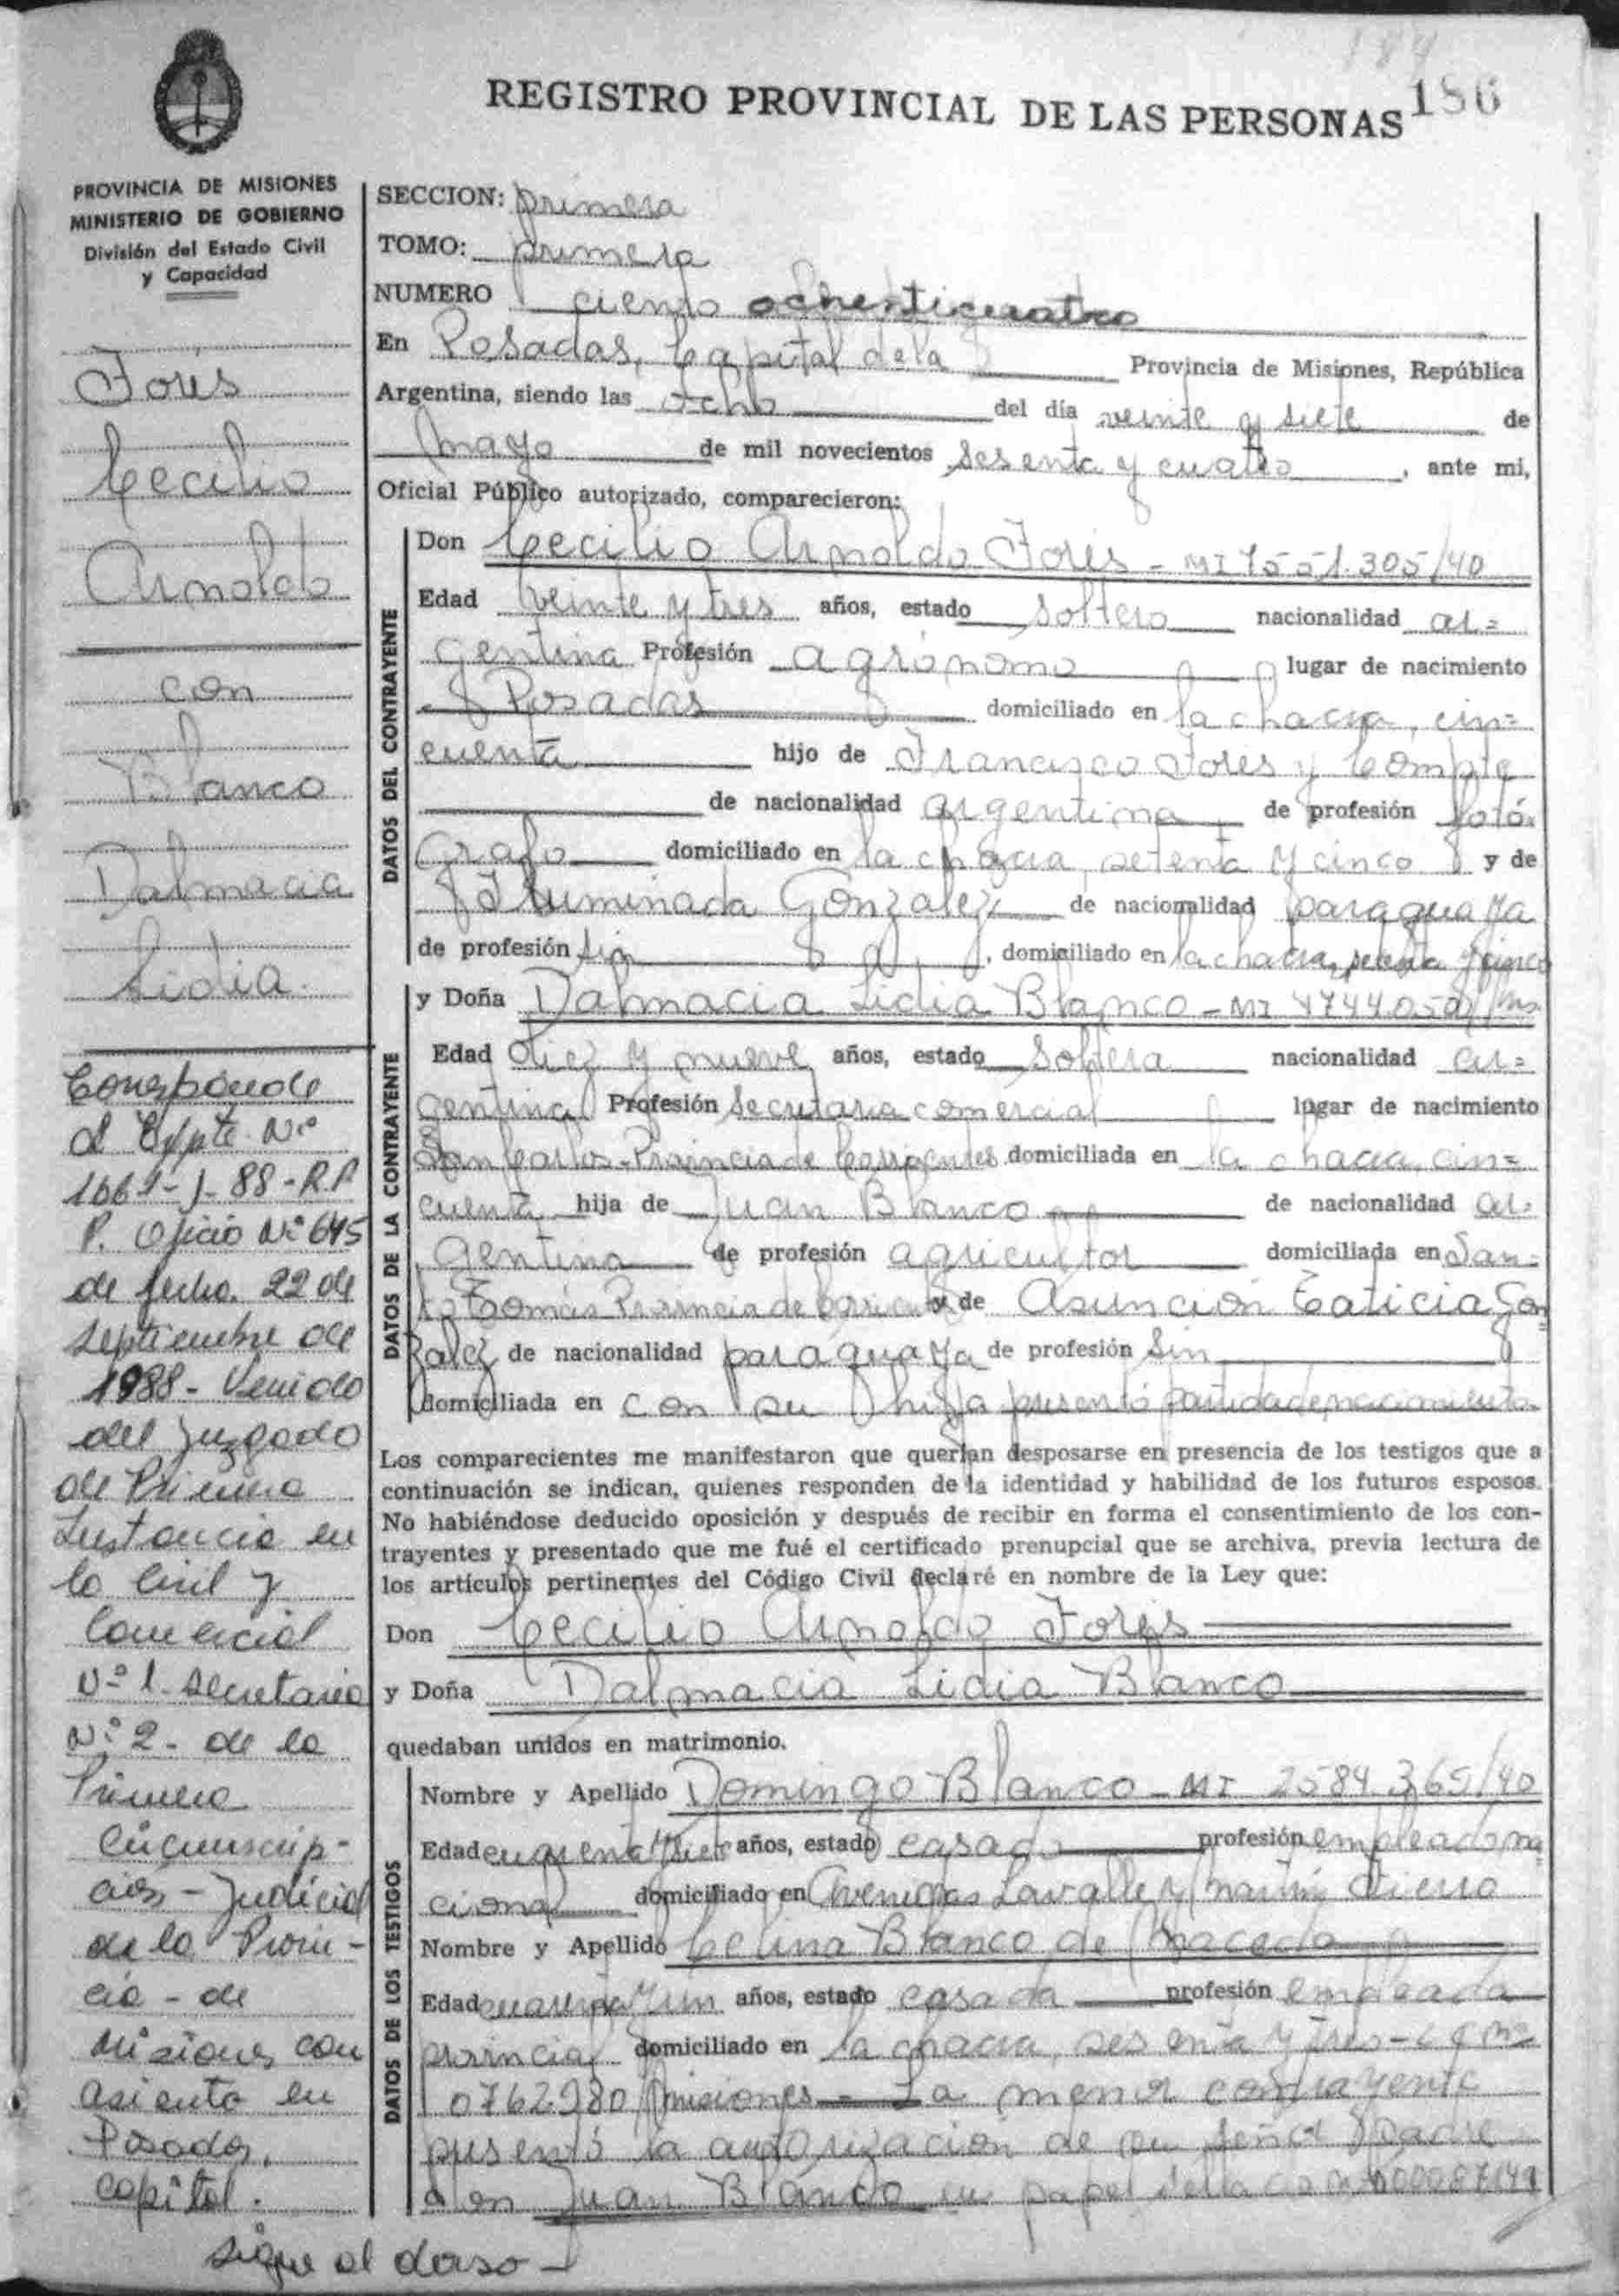 184
186
REGISTRO PROVINCIAL DE LAS PERSONAS
PROVINCIA DE MISIONES
MINISTERIO DE GOBIERNO
División del Estado Civil
y Capacidad
Fores
Cecilio
Arnoldo
con
Blanco
Dalmacia
Lidia
Corresponde
al Expte. Nº
1661-J-88-R.P.
P. Oficio Nº 645
de fecha 22 de
septiembre de
1988 - Venido
del Juzgado
de Primera
Instancia en
lo Civil y
Comercial
Nº 1. Secretaria
Nº 2 - de la
Primera
Circunscrip-
cion - Judicial
de la Provin-
cia - de
Misiones con
asiento en
Posadas,
capital.
sigue al dorso -
SECCION: primera
TOMO: primera
NUMERO ciento ochenticuatro
En Posadas, Capital de la Provincia de Misiones, República
Argentina, siendo las ocho del día veinte y siete de
mayo de mil novecientos sesenta y cuatro, ante mi,
Oficial Público autorizado, comparecieron:
DATOS DEL CONTRAYENTE
Don Cecilio Arnoldo Fores - MI 7551.305/40
Edad veinte y tres años, estado soltero nacionalidad ar=
gentina Profesión agrónomo lugar de nacimiento
Posadas domiciliado en la chacra, cin=
cuenta hijo de Francisco Fores y Compte
de nacionalidad argentina, de profesión fotó=
grafo domiciliado en la chacra, setenta y cinco y de
Iluminada Gonzalez de nacionalidad paraguaya
de profesión sin, domiciliado en la chacra, setenta y cinco
DATOS DE LA CONTRAYENTE
y Doña Dalmacia Lidia Blanco - MI 4744.050/Ms
Edad diez y nueve años, estado soltera nacionalidad ar=
gentina Profesión secretaria comercial lugar de nacimiento
San Carlos - Provincia de Corrientes domiciliada en la chacra, cin=
cuenta hija de Juan Blanco de nacionalidad ar=
gentina de profesión agricultor domiciliada en San=
to Tomás Provincia de Corrientes y de Asunción Leticia Gon
zalez de nacionalidad paraguaya de profesión sin
domiciliada en con su hija presentó partida de nacimiento
Los comparecientes me manifestaron que querían desposarse en presencia de los testigos que a
continuación se indican, quienes responden de la identidad y habilidad de los futuros esposos.
No habiéndose deducido oposición y después de recibir en forma el consentimiento de los con-
trayentes y presentado que me fué el certificado prenupcial que se archiva, previa lectura de
los artículos pertinentes del Código Civil declaré en nombre de la Ley que:
Don Cecilio Arnoldo Fores
y Doña Dalmacia Lidia Blanco
quedaban unidos en matrimonio.
DATOS DE LOS TESTIGOS
Nombre y Apellido Domingo Blanco - MI 2584.365/40
Edad años, estado casado profesión empleado na
cional domiciliado en Avenidas Lavalle y Martín Fierro
Nombre y Apellido Celina Blanco de Macedo
Edad cuarenta y un años, estado casada profesión empleada
provincial domiciliado en la chacra, sesenta y tres -
0762280 Misiones - La menor contrayente
presentó la autorización de su señor padre
don Juan Blanco en papel